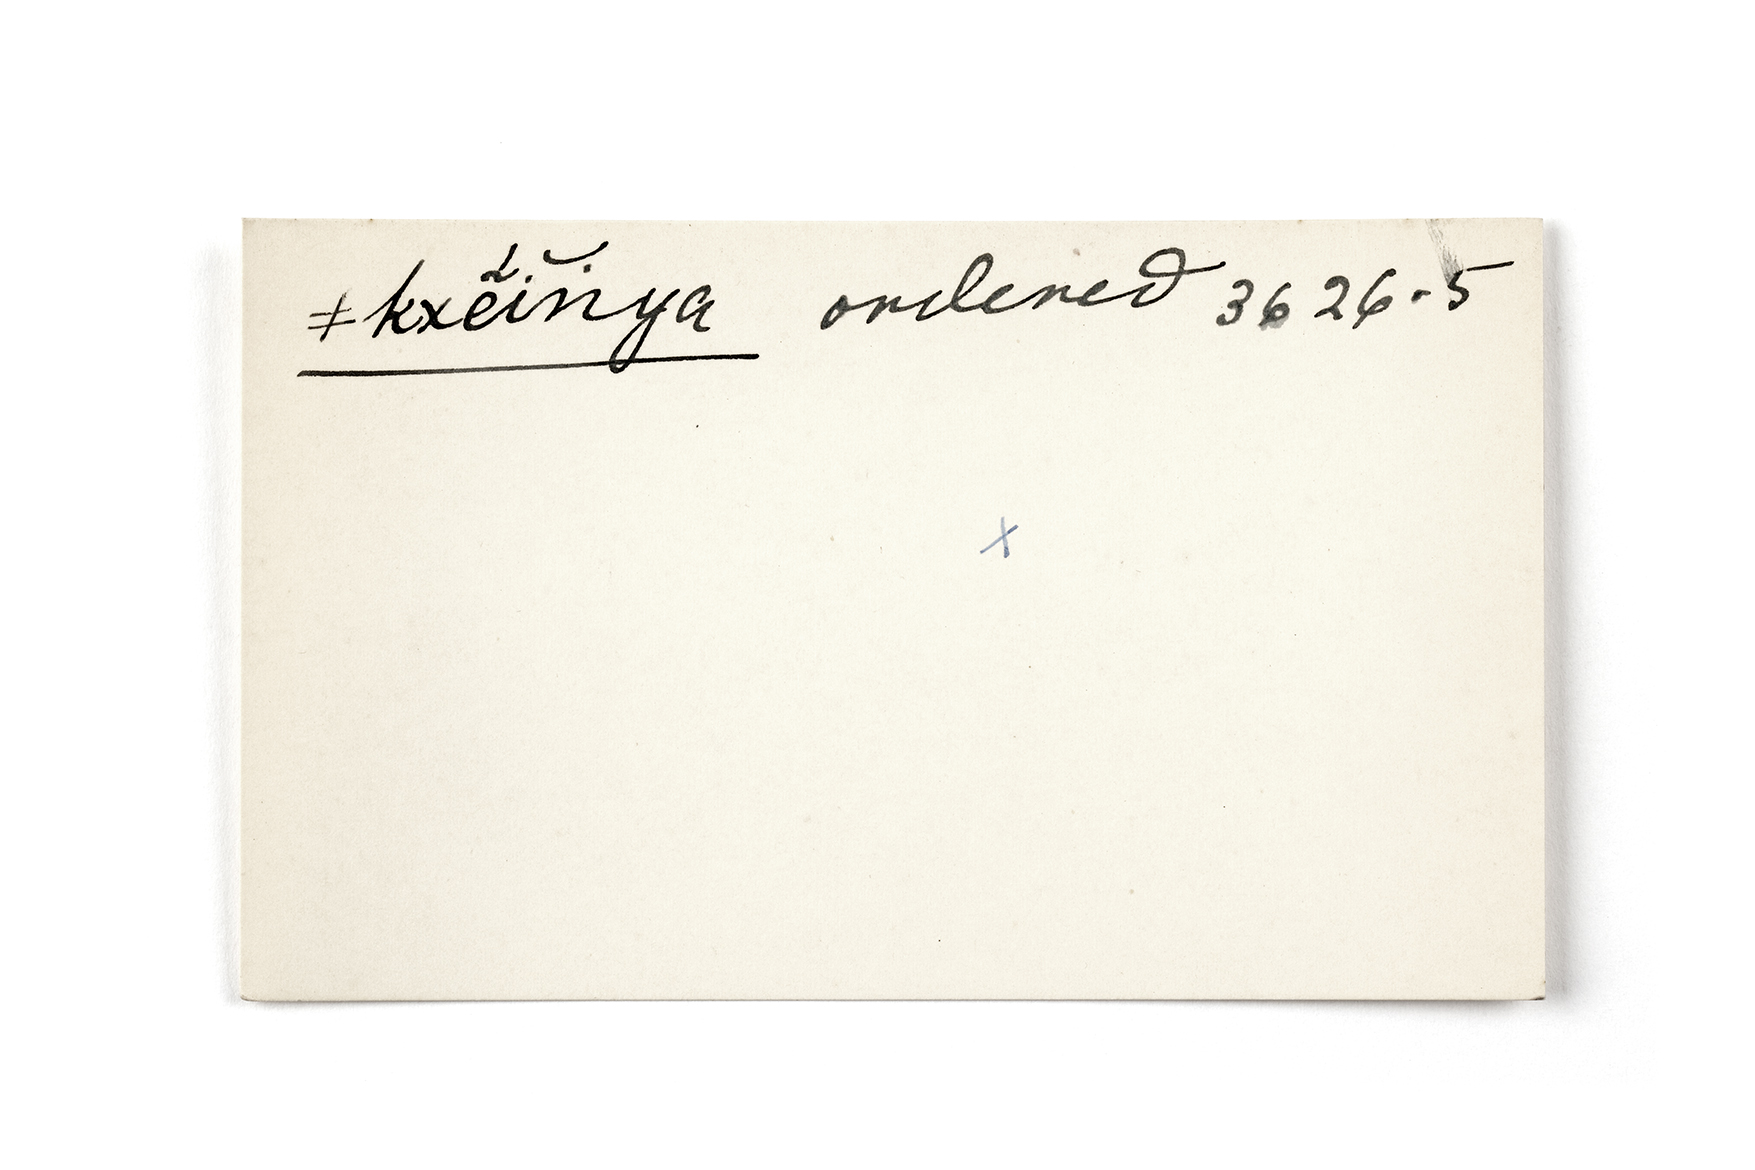 ǂkxẽinya ordered 3626-5
x